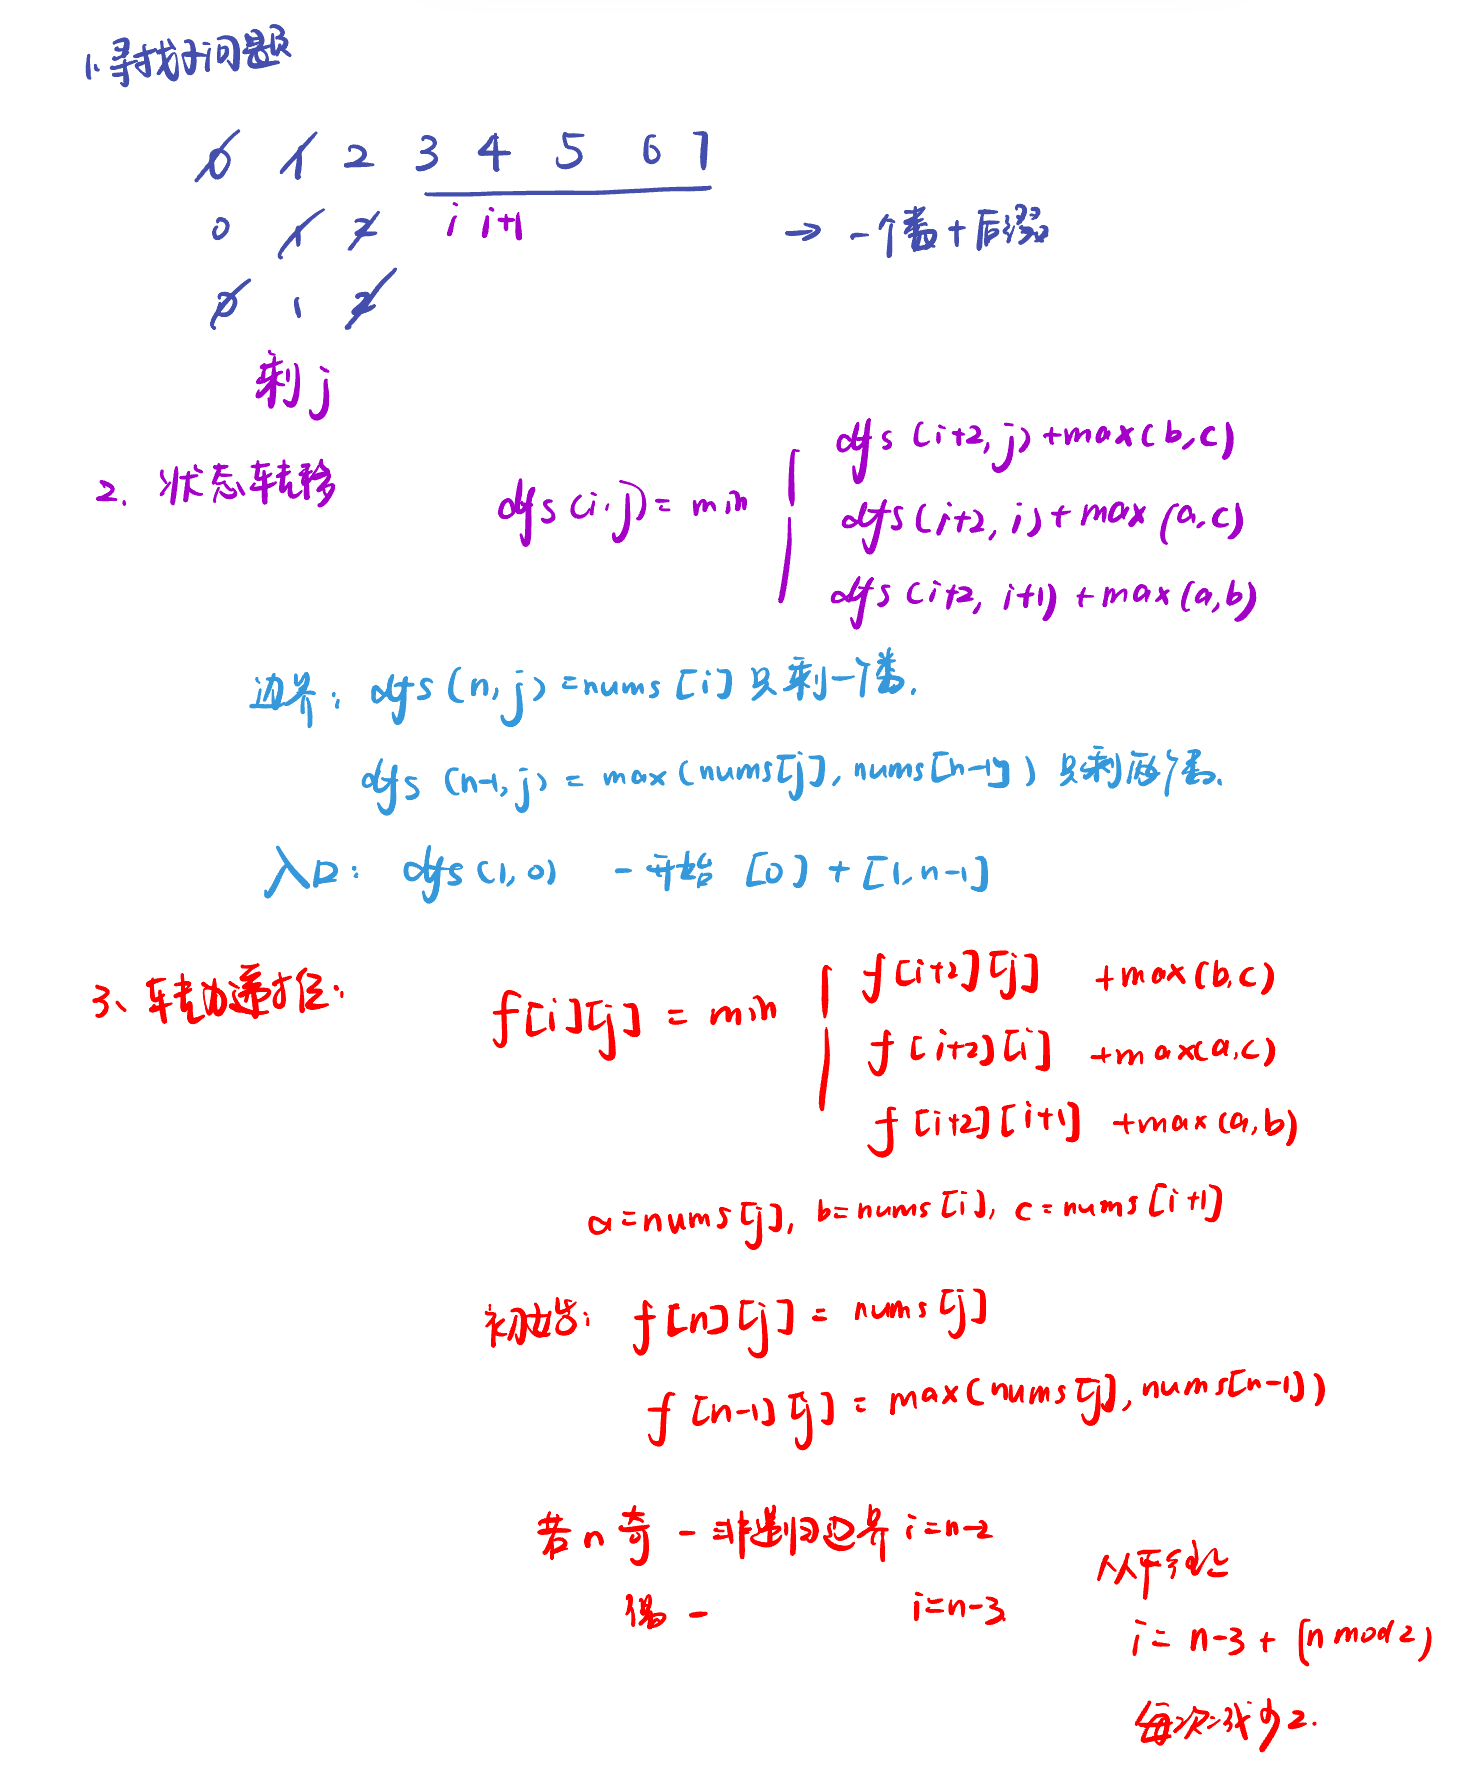 1. 寻找子问题
0 1 2 3 4 5 6 7
0 1 2 i i+1 → 一个数+后缀
0 1 2
剩j
2. 状态转移
dfs(i,j)= min
dfs(i+2,j)+max(b,c)
dfs(i+2,i)+max(a,c)
dfs(i+2,i+1)+max(a,b)
边界: dfs(n,j)=nums[i] 只剩一个数.
dfs(n-1,j)= max(nums[j],nums[n-1]) 只剩两个数.
入口: dfs(1,0) - 开始 [0]+[1,n-1]
3、转为递推:
f[i][j] = min
f[i+2][j] +max(b,c)
f[i+2][i] +max(a,c)
f[i+2][i+1] +max(a,b)
a=nums[j], b=nums[i], c=nums[i+1]
初始: f[n][j] = nums[j]
f[n-1][j] = max(nums[j],nums[n-1])
若n奇 - 非递归边界 i=n-2
偶 - i=n-3
i= n-3+(n mod 2)
每次减少2.